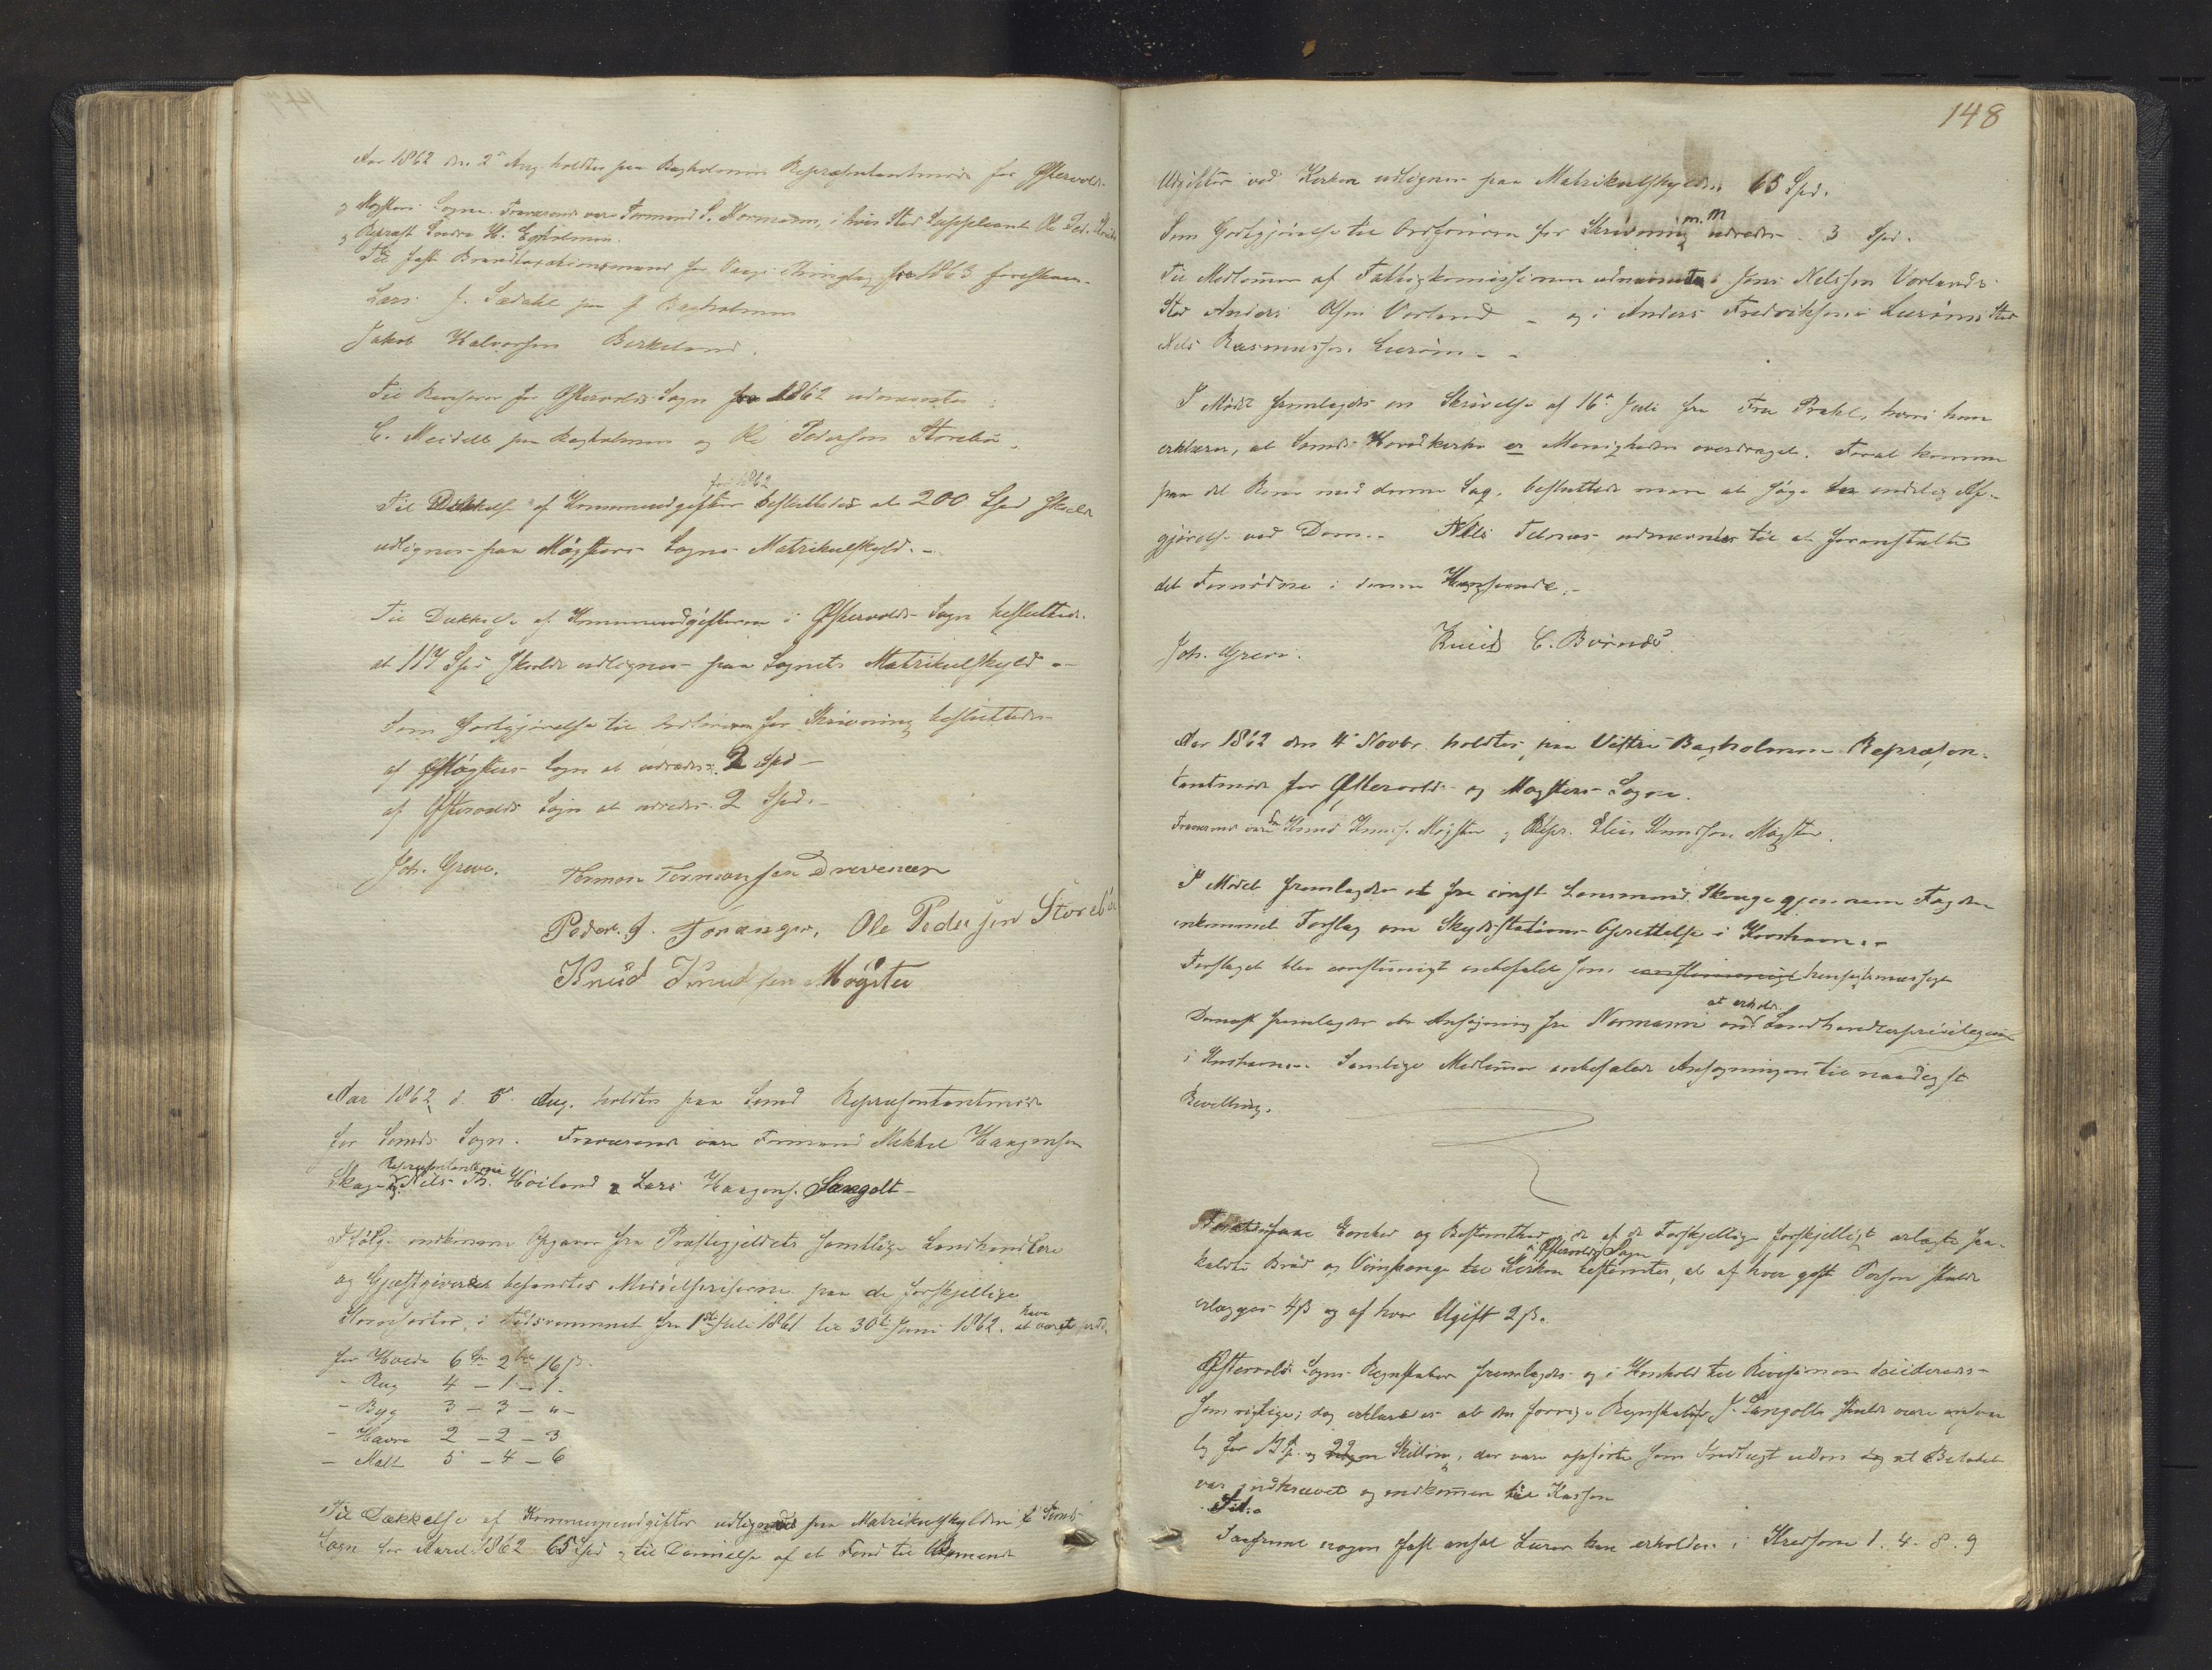 Aar 1862 den 2den Aug holdtes paa Bagholmen Repræsentantmøde for Østervolds-
og Møgsters Sogne. Fraværende vare Formand S. Normann, i hvis Sted Suppleant Ole Ped. Storebø
og Repræst Sndre H. Egholmen.
Til fast Brandtaxationsmand for Vaags Thinglag for 1863 foreslaaes
Lars J. Sædahl paa Bagholmen
Jakob Halvorsen Birkeland.
Til Revisorer for Østervolds Sogn for 1862 udnævntes:
C. Meidell paa Bagholmen og Ole Pedersen Storebø.
Til Dækkelse af Kommuneudgifter for 1862 besluttedes at 200 Spd skulde
udlignes paa Møgsters Sogns Matrikulskyld.-
Til Dækkelse af Kommuneudgifterne i Østervolds Sogn besluttedes
at 117 Spd skulde udlignes paa Sognets Matrikulskyld.-
Som Godtgjørelse til Ordføreren for Skrivning besluttedes
af Møgsters Sogn at udredes 2 Spd -
af Østervolds Sogn at udredes 2 Spd.-
Joh. Greve. Tormon Tormonsen Drivenes
Peder J. Toranger, Ole Pedersen Storebø
Knud Knudsen Møgster
Aar 1862 d. 5 Aug. holdtes paa Sund Repræsentantmøde
for Sunds Sogn. Fraværende vare Formand Mikkel Haagensen
Skage og Repræsentanterne Nils Th. Høiland og Lars Haagens. Sangolt -
Ifølge indkomne Opgaver fra Præstegjeldets samtlige Landhandlere
og Gjæstgivere befandtes Middelpriserne paa de forskjellige
Kornsorter i Tidsrummet fra 1ste Juli 1861 til 30te Juni 1862 at have været
for Hvede 6 2 16 ß.
- Rug 4 - 1 - 1 -
- Byg 3 - 3 - " -
- Havre 2 - 2 - 3
- Malt 5 - 4 - 6
Til Dækkelse af Kommuneudgifter udlignedes paa Matrikulskylden i Sunds
Sogn for Aaret 1862 65 Spd og til Dannelse af et Fond til
148
Udgifter ved Kirken udlignes paa Matrikulskylden 65 Spd.
Som Godtgjørelse til Ordføreren for Skrivning m. m. udredes 3 Spd.
Til Medlemmer af Fattigkommissionen udnævntes i Jens Nelssen Vorlands
Sted Anders Olsen Vorland - og i Anders Fredriksens Lerøens Sted
Nels Rasmussen Lerøen. -
I Mødet fremlagdes en Skrivelse af 16de Juli fra Fru Prahl, hvori hun
erklærer, at Sunds Hovedkirke er Menigheden overdraget. For at komme
paa det Rene med denne Sag, besluttede man at søge endelig Af-
gjørelse ved Dom. Nils Telnæs udnævnes til at foranstalte
det Fornødne i denne Henseende.-
Joh. Greve. Knud C. Børnæs
Aar 1862 den 4de Novbr. holdtes paa Vestre Bagholmen Repræsen-
tantmøde for Østervolds og Møgsters Sogne.
Fraværende vare Knud Knuds. Møgster og Repr. Elias Knudsen Møgster.
I Mødet fremlagdes et fra const. Lensmand Skauge gjennem Fogden
indkommet Forslag om Skydsstations Oprettelse i Korshavn.-
Forslaget blev eenstemmigt anbefalet som eenstemmigt hensigtsmæssigt
Dernæst fremlagdes en Ansøgning fra Normann om at erholde Landhandlerprivilegium
i Korshavn. Samtlige Medlemmer anbefalede Ansøgningen til naadigst
Bevilling.
For at faae Eenshed og Bestemthed i de af de Forskjellige forskjelligt erlagte saa-
kaldte Brød og Viinpenge til Kirken i Østervolds Sogn bestemtes, at af hver gift Person skulde
erlægges 4 ß og af hver Ugift 2 ß.
Østervolds Sogns Regnskaber fremlagdes og i Henhold til Revisionen decideredes
som rigtige; dog erklæredes at den forrige Regnskabsf. J. Sangolt skulde være ansvar-
lig for 12 Sp. og 22 Skilling, der vare opførte som Indtægt uden at Beløbet
var indkrævet og indkommen til Kassen
Saafremt nogen fast ansat Lærer kan erholdes i Kredsene 1. 4. 8. 9